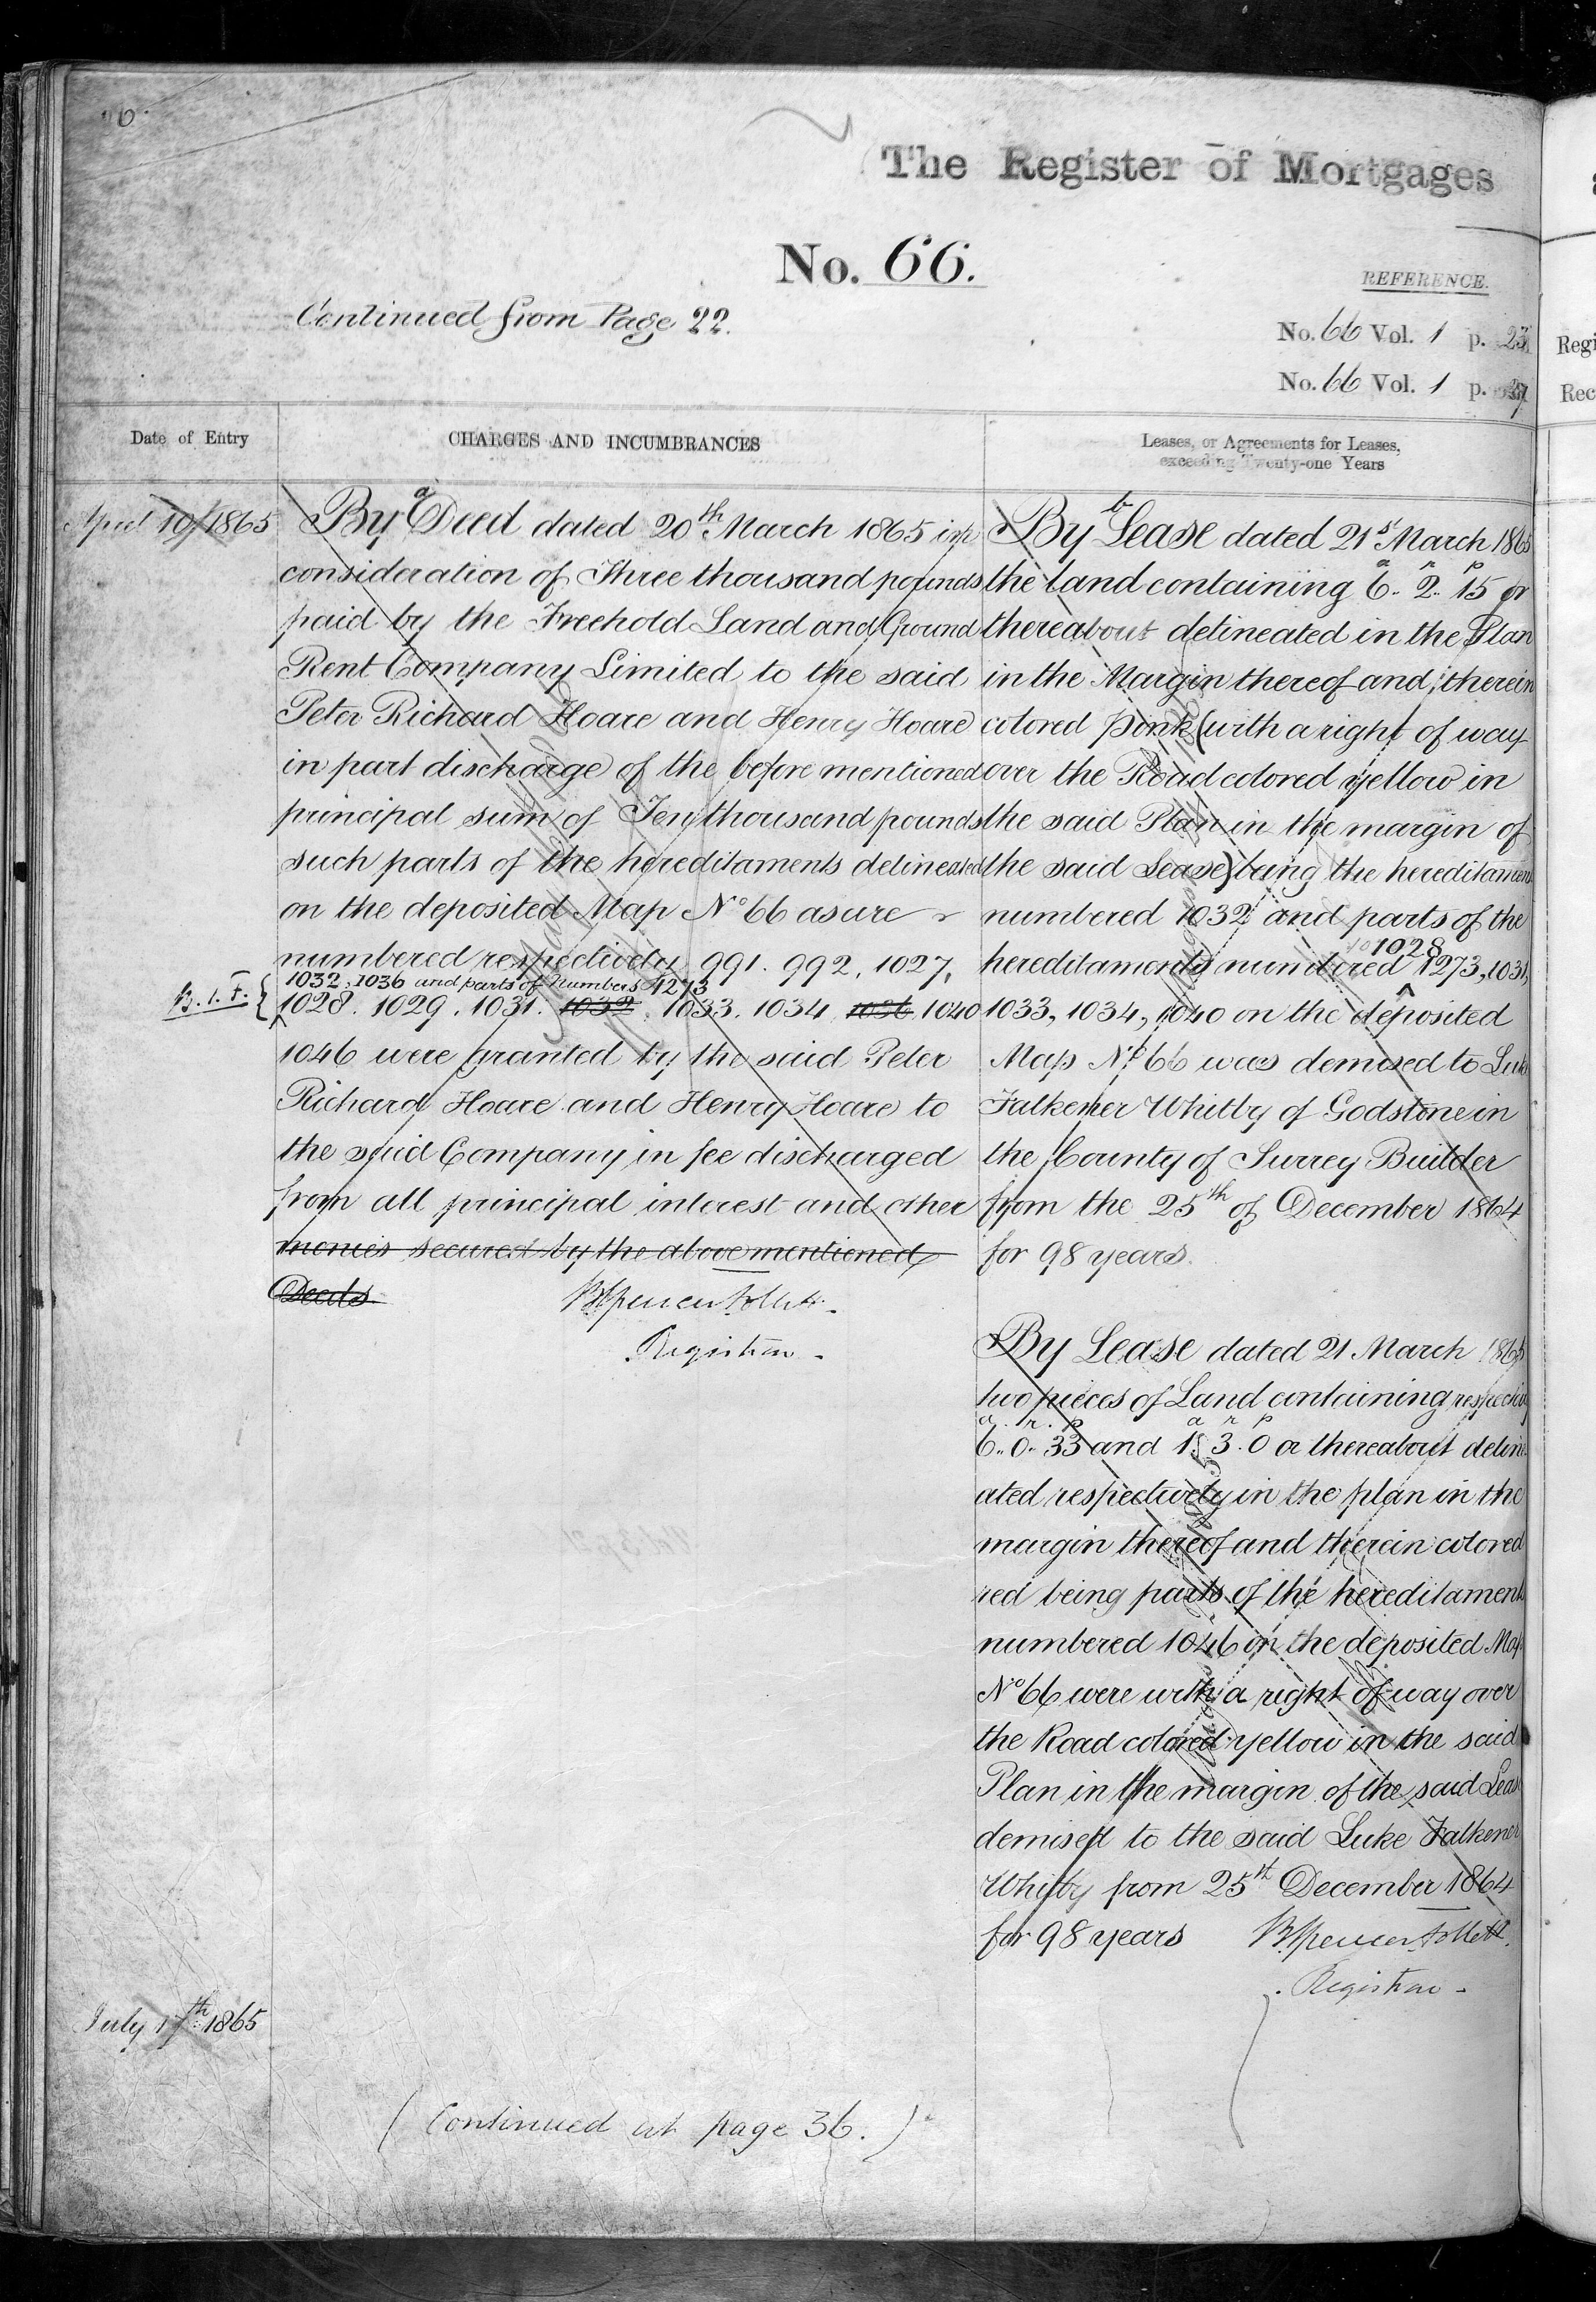 The Register of Mortgages
No. 66.
REFERENCE.
Continued from Page 22.
No. 66 Vol. 1 p. 23
No. 66 Vol. 1 p.
Regi
Rec
Date of Entry
CHARGES AND INCUMBRANCES
Leases, or Agreements for Leases,
exceeding Twenty-one Years
April 10/1865
a
By Deed dated 20th March 1865 in
consideration of Three thousand pounds
paid by the Freehold Land and Ground
Rent Company Limited to the said
Peter Richard Hoare and Henry Hoare
in part discharge of the before mentioned
principal sum of Ten thousand pounds
such parts of the hereditaments delineated
on the deposited Map No 66 as were
numbered respectively 991. 992, 1027,
1032, 1036 and parts of Numbers 1273
B.S.F. {
1028. 1029. 1031. 1032. 1033. 1034 1036 1040
1046 were granted by the said Peter
Richard Hoare and Henry Hoare to
the said Company in fee discharged
from all principal interest and other
monies secured by the above mentioned
Deeds
B Spencer Follett.
Registrar
b
By Lease dated 21st March 1865
the land containing 6a. 2r. 15p or
thereabout delineated in the Plan
in the Margin thereof and therein
colored pink (with a right of way
over the Road colored yellow in
the said Plan in the margin of
the said Lease) being the hereditamen
numbered 1032 and parts of the
1028
hereditaments numbered 1273, 1031,
1033, 1034, 1040 on the deposited
Map No 66 was demised to Luke
Falkener Whitby of Godstone in
the County of Surrey Builder
from the 25th of December 1864
for 98 years.
By Lease dated 21 March 1865
two pieces of Land containing respectively
a. r. p a r p
6.. 0.. 33 and 1. 3. 0 or thereabout deline
ated respectively in the plan in the
margin thereof and therein colored
red being parts of the hereditaments
numbered 1046 on the deposited Map
No 66 were with a right of way over
the Road colored yellow in the said
Plan in the margin of the said Lease
demised to the said Luke Falkener
Whitby from 25th December 1864
for 98 years
B Spencer Follett.
Registrar
July 17th 1865
(Continued at page 36.)